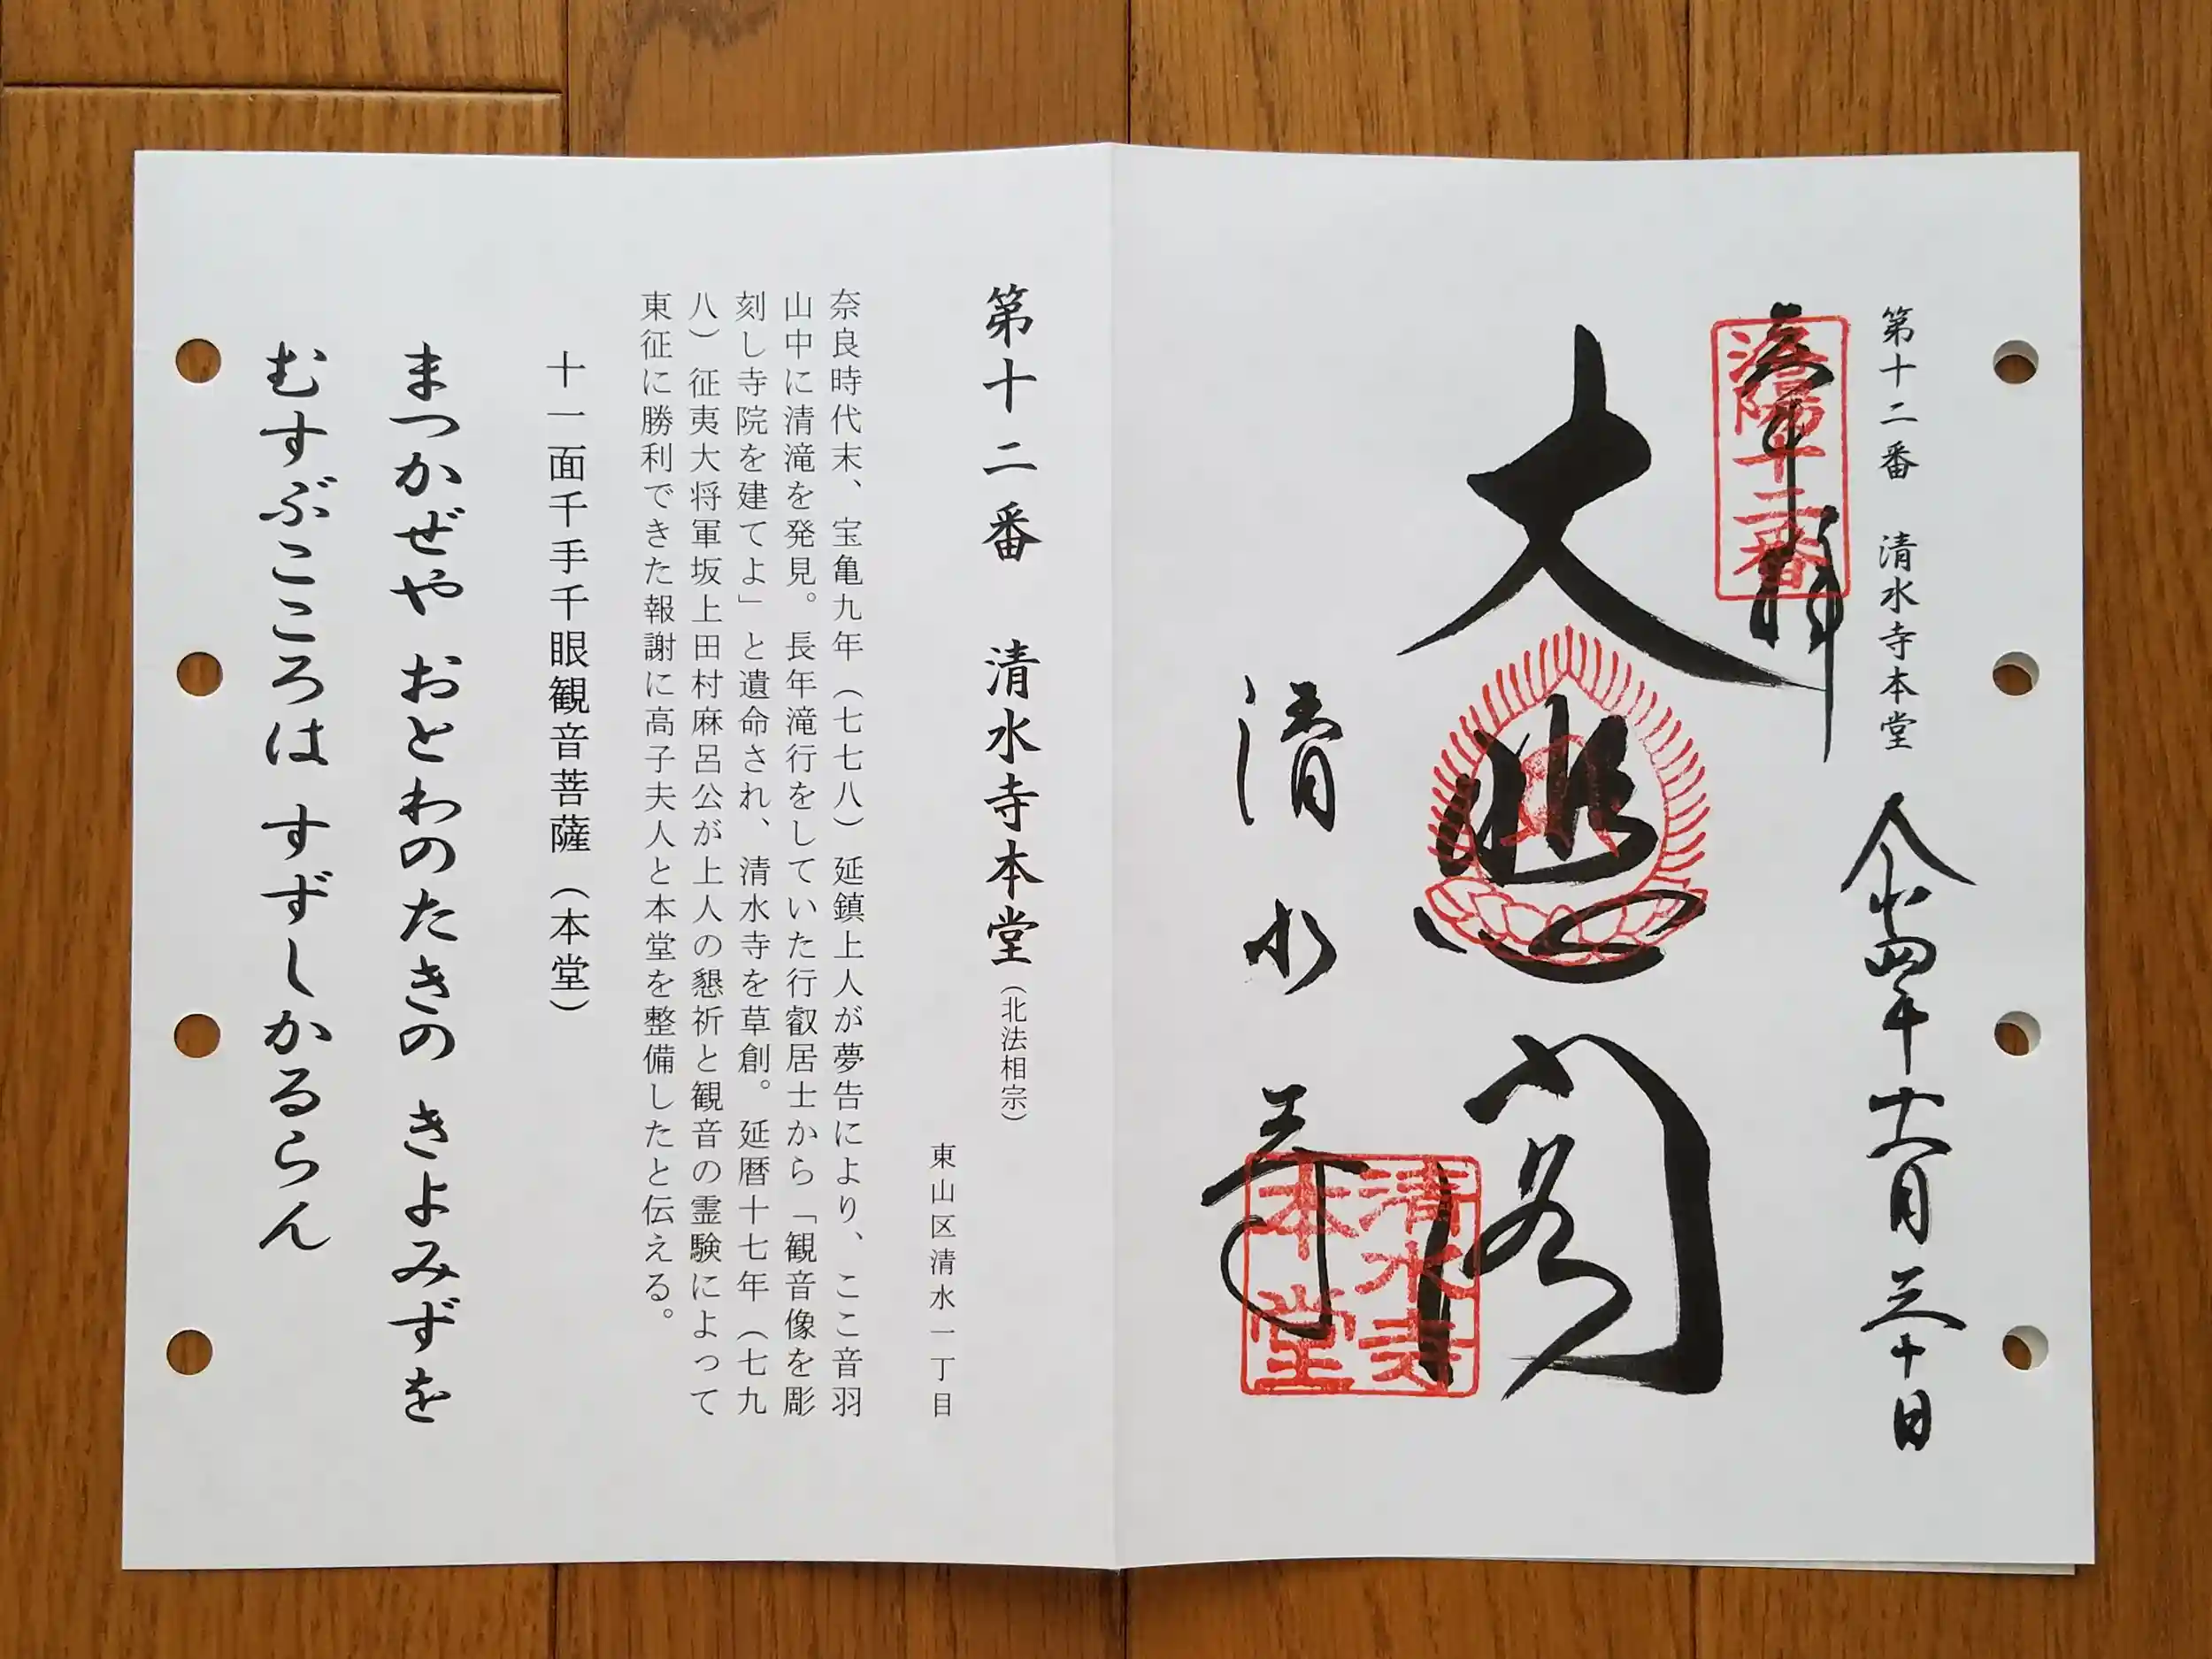 第十二番 清水寺本堂
令和四年十一月三十日
奉拝
洛陽十二番
大悲閣
清水寺
清水寺
本堂
第十二番 清水寺本堂(北法相宗)
東山区清水一丁目
奈良時代末、宝亀九年(七七八)延鎮上人が夢告により、ここ音羽
山中に清滝を発見。長年滝行をしていた行叡居士から「観音像を彫
刻し寺院を建てよ」と遺命され、清水寺を草創。延暦十七年(七九
八)征夷大将軍坂上田村麻呂公が上人の懇祈と観音の霊験によって
東征に勝利できた報謝に高子夫人と本堂を整備したと伝える。
十一面千手千眼観音菩薩(本堂)
まつかぜや おとわのたきの きよみずを
むすぶこころは すずしかるらん